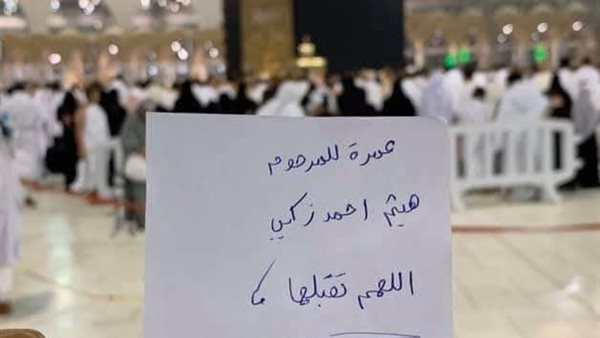 عمرة للمرحوم
هيثم احمد زكي
اللهم تقبلها